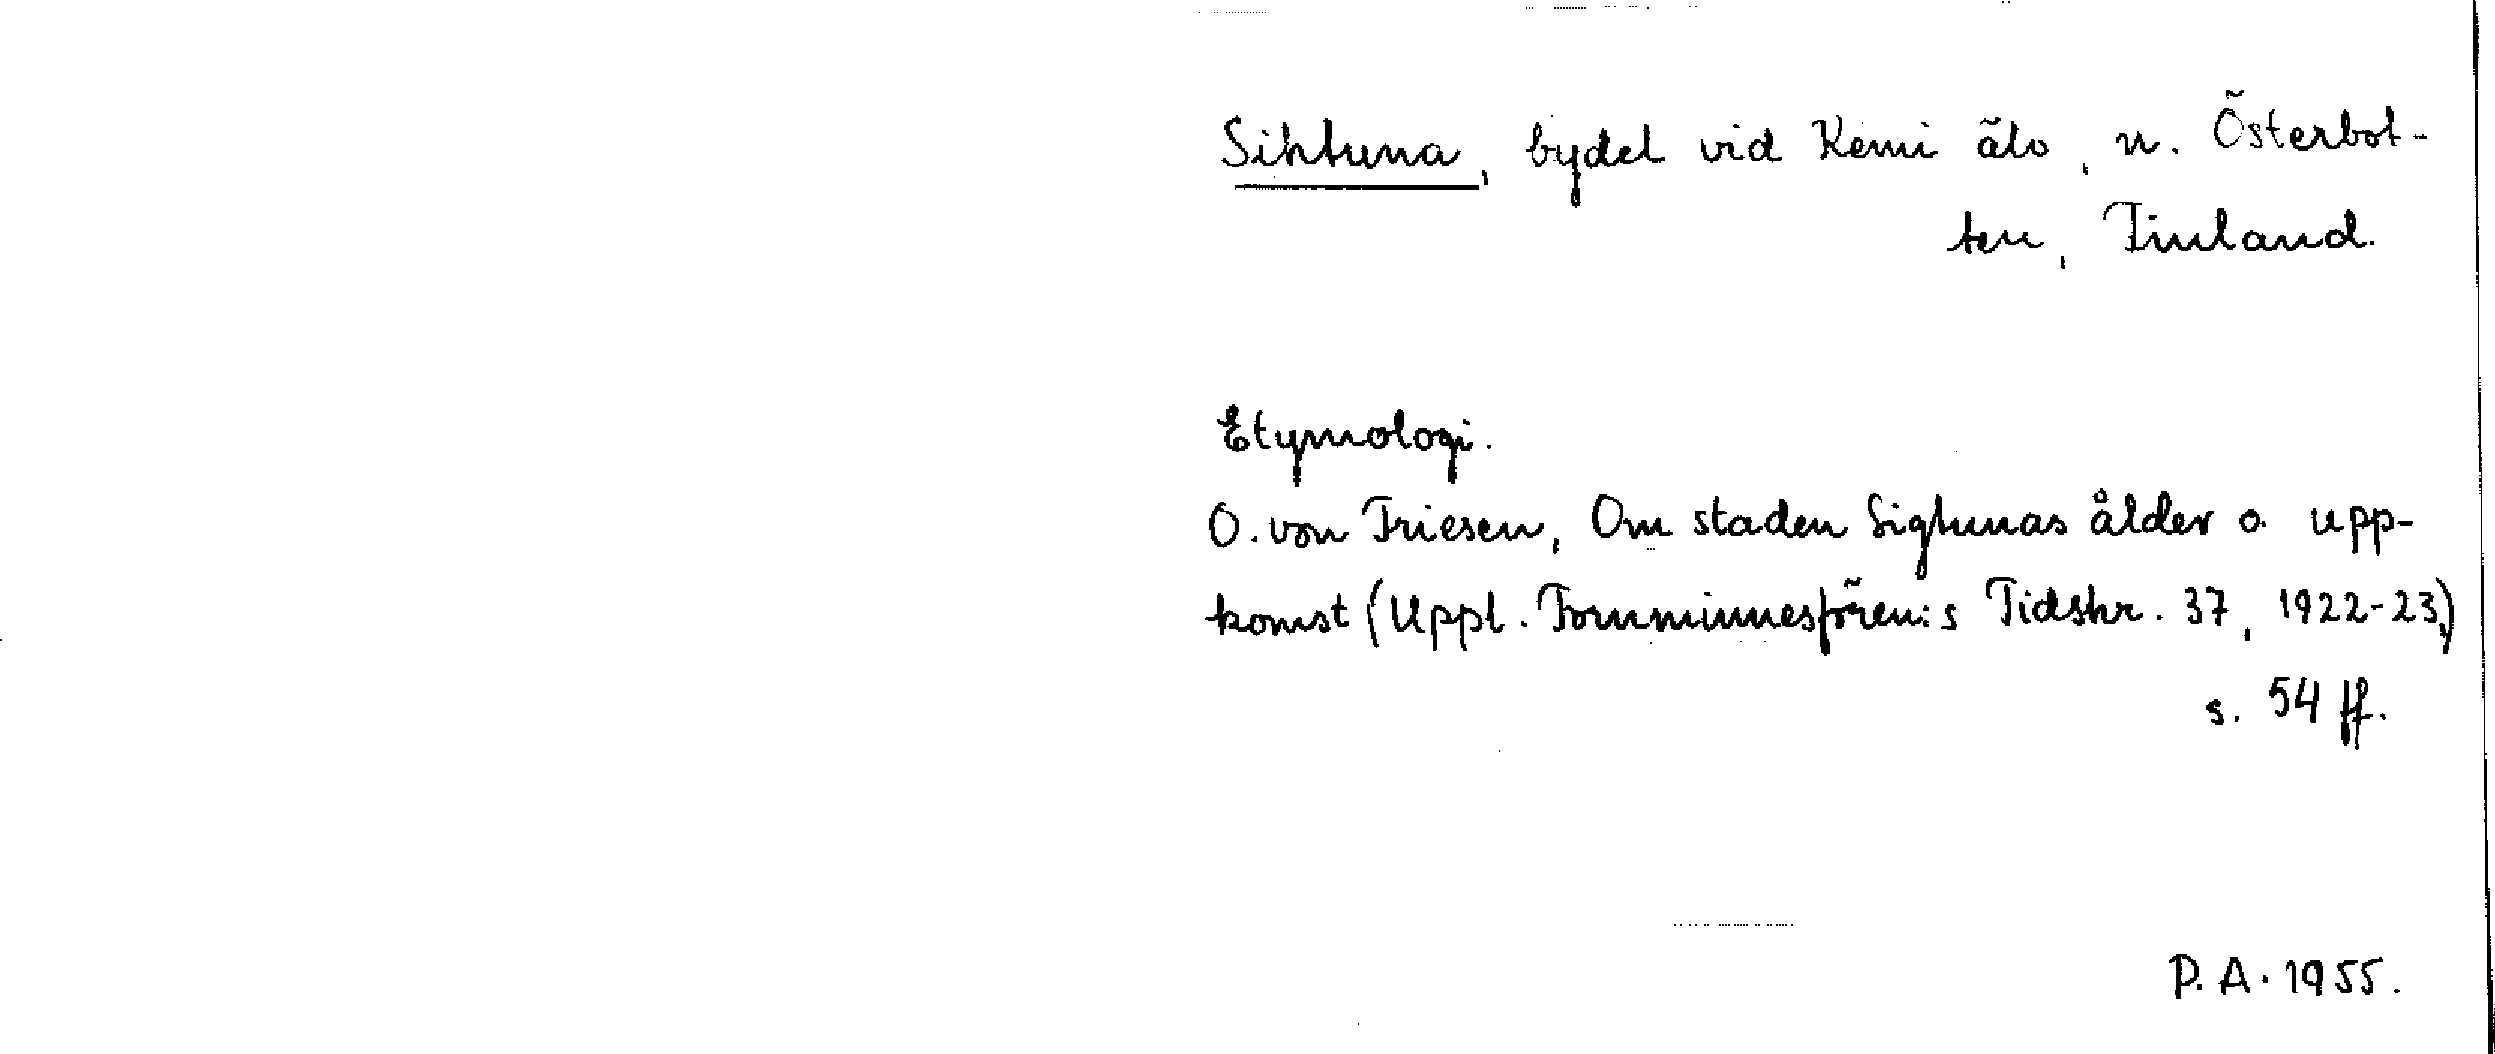 Sihtuna, bydel vid Kemi älv, n. Österbot-
ten, Finland.
Etymologi.
O. von Friesen, Om staden Sigtunas ålder o. upp-
komst (Uppl. Fornminnesfören:s Tidskr. 37, 1922-23,)
s. 54 ff.
P. A. 1955.